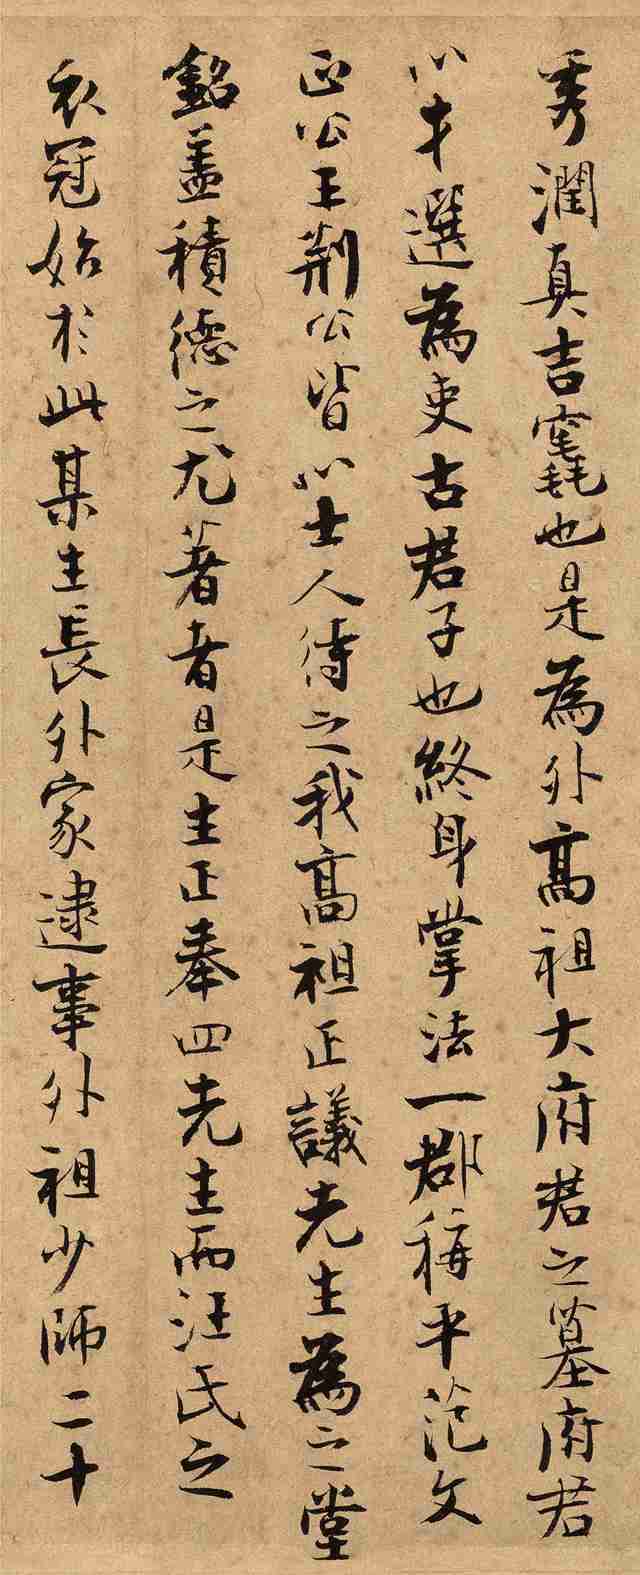 秀潤真吉竁也是為外高祖大府君之墓府君
以才選為吏古君子也終身掌法一郡稱平范文
正公王荆公皆以士人待之我高祖正議先生為之堂
銘蓋積德之尤著者是生正奉四先生而汪氏之
衣冠始於此某生長外家逮事外祖少師二十